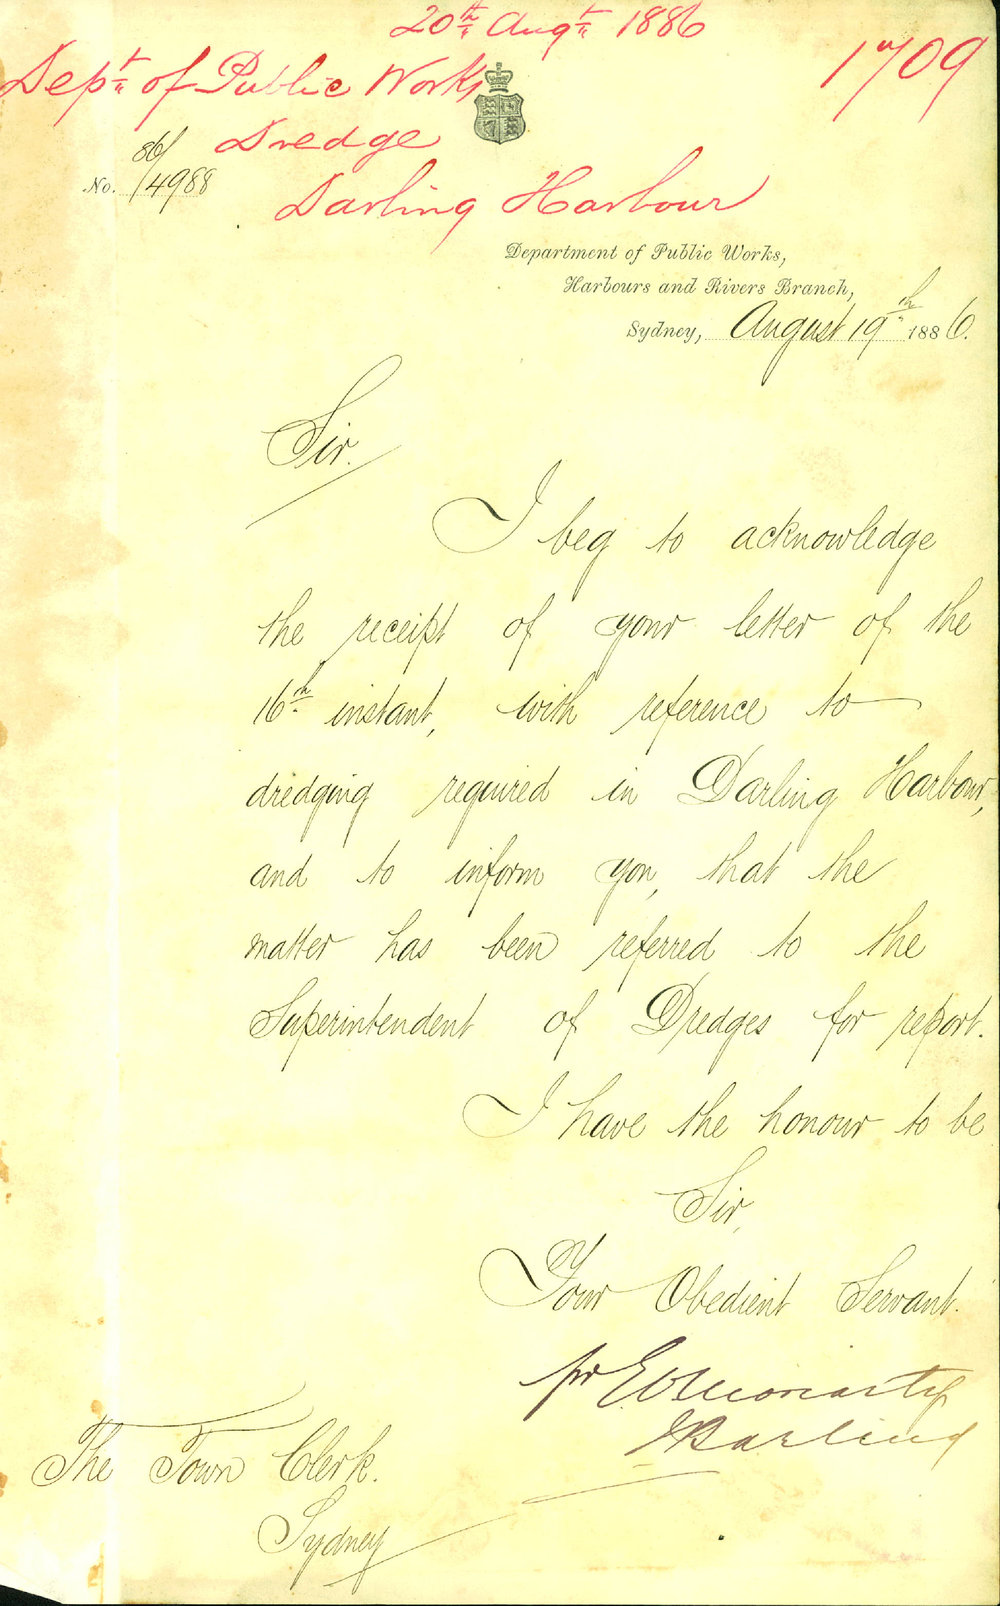 20th Augt 1886
1709
Dept of Public Works
Dredge
Darling Harbour
No. 86/4988
Department of Public Works,
Harbours and Rivers Branch,
Sydney, August 19th 1886.
Sir.
I beg to acknowledge
the receipt of your letter of the
16th instant, with reference to
dredging required in Darling Harbour,
and to inform you, that the
matter has been referred to the
Superintendent of Dredges for report.
I have the honour to be
Sir,
Your Obedient Servant.
pr E O Moriarty
Darling
The Town Clerk.
Sydney